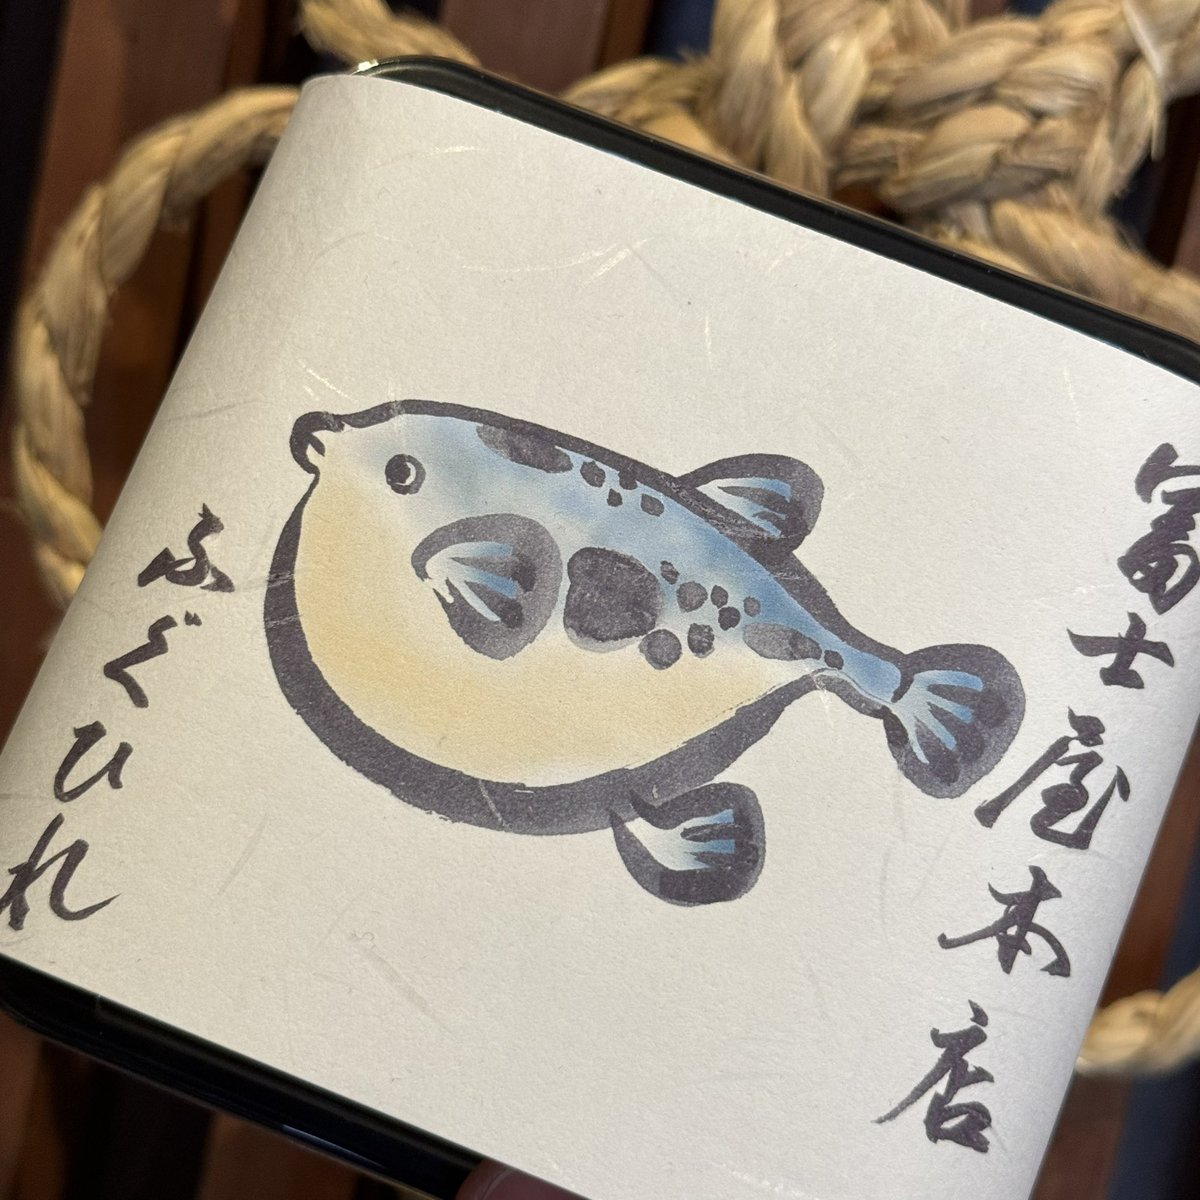 冨士屋本店
ふぐひれ